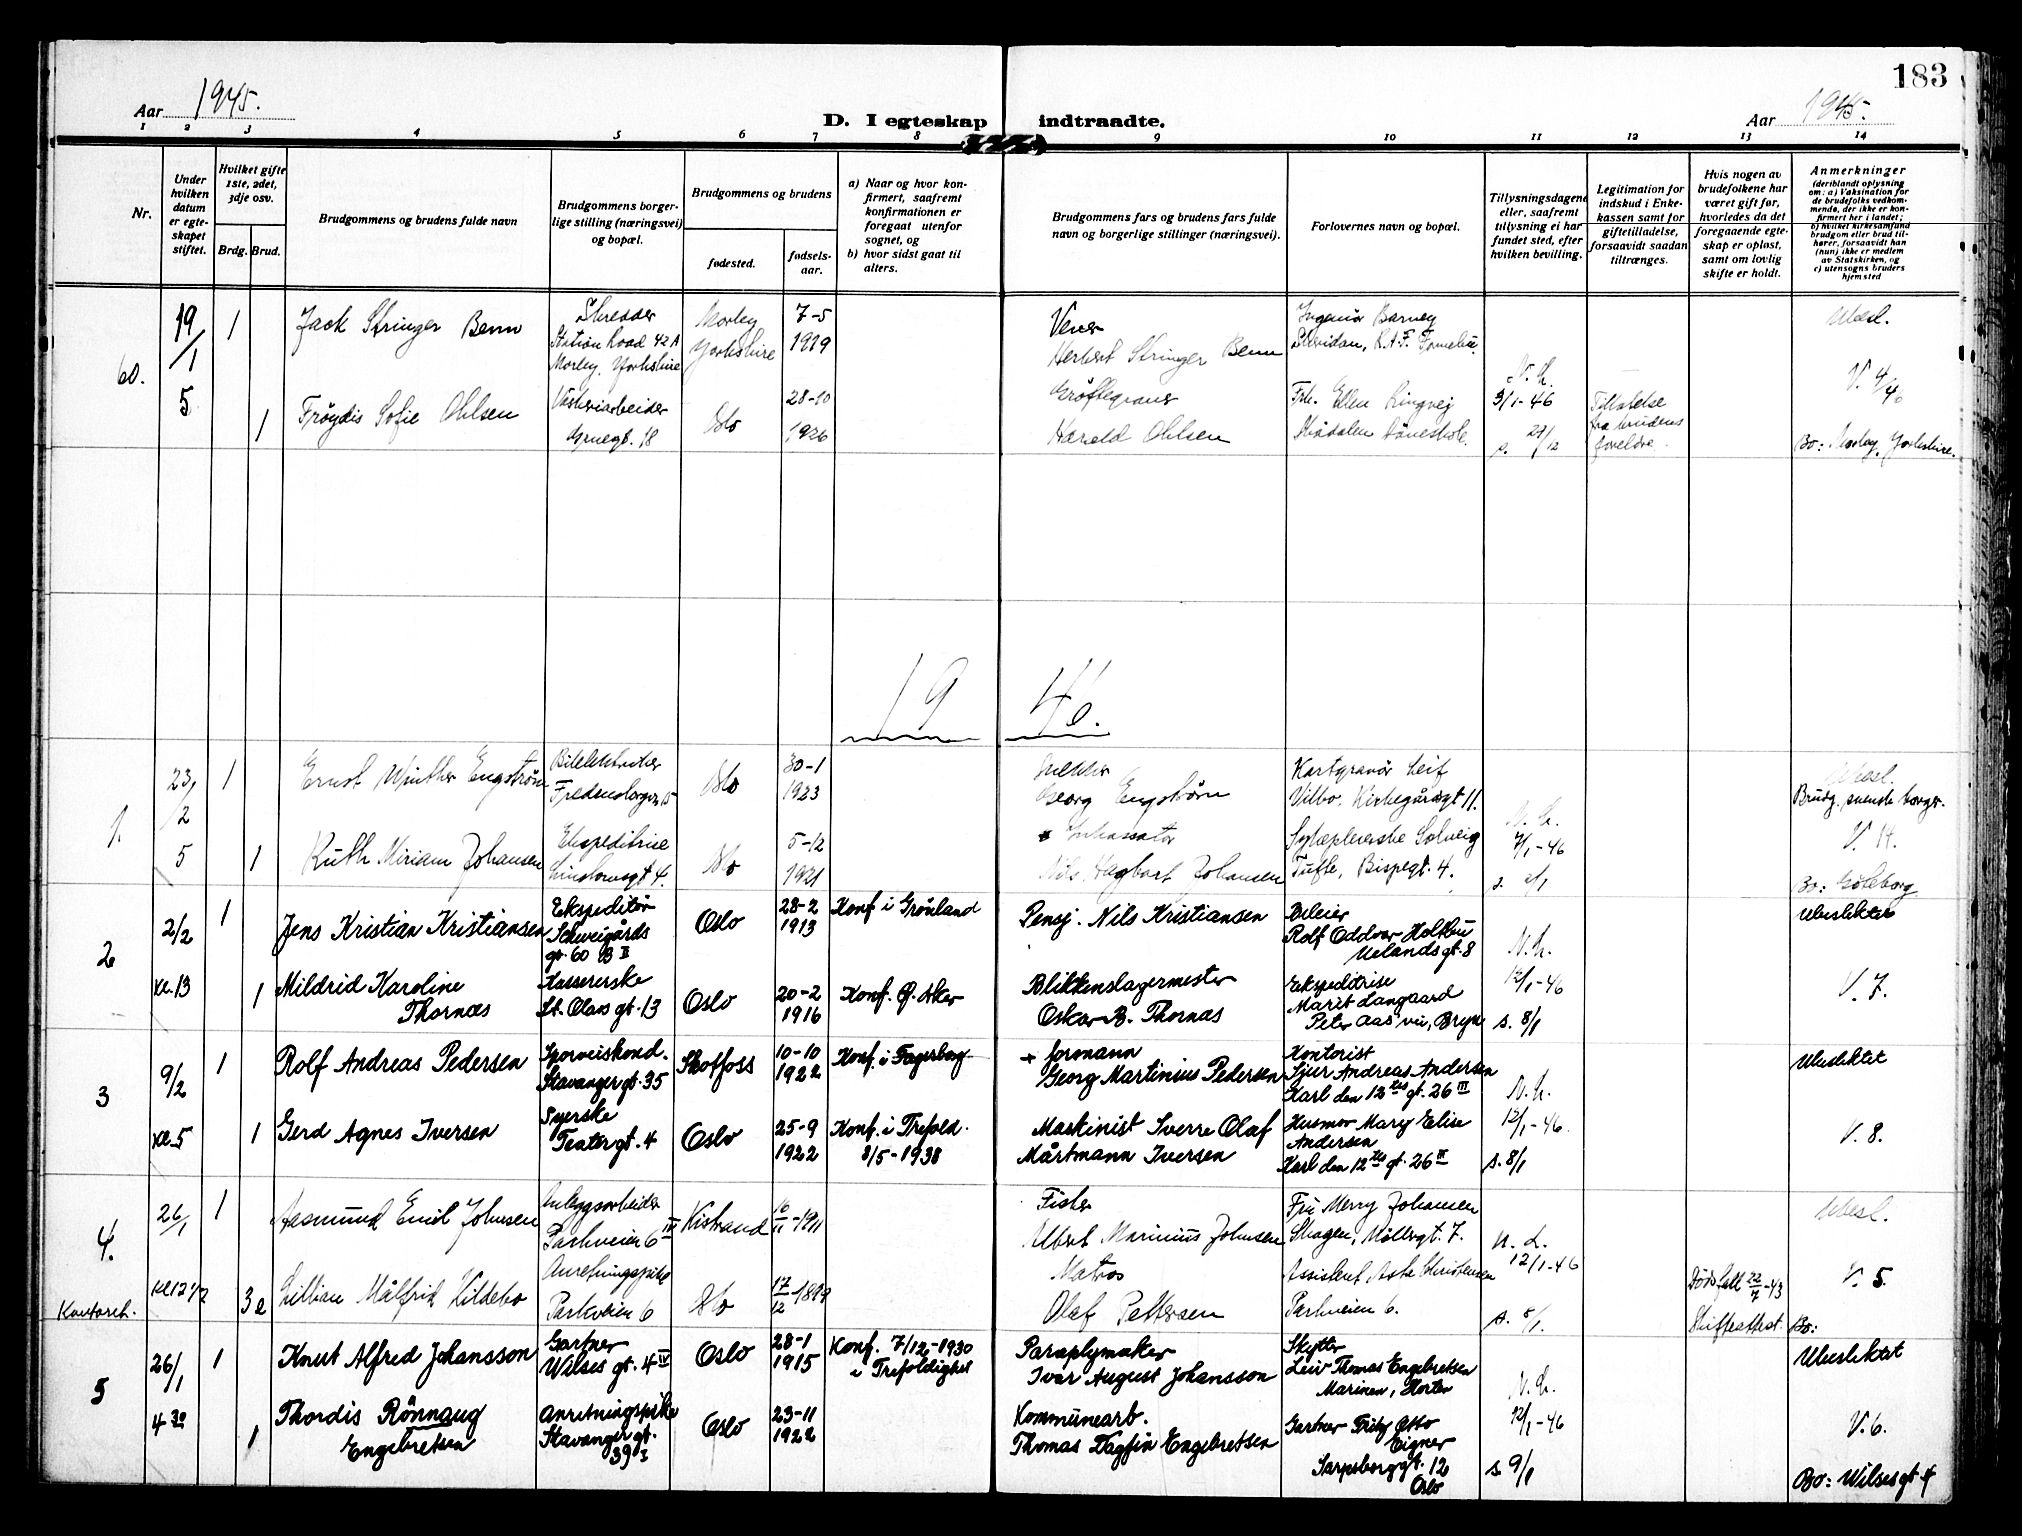 183
Aar 1945.
D. I egteskap indtraadte.
Aar 1945.
1 2 3 4 5 6 7 8 9 10 11 12 13 14
Nr.
Under hvilken datum er egteskapet stiftet.
Hvilket gifte 1ste, 2det, 3dje osv.
Brdg. Brud.
Brudgommens og brudens fulde navn
Brudgommens borgerlige stilling (næringsvei) og bopæl.
Brudgommens og brudens
fødested.
fødselsaar.
a) Naar og hvor konfirmert, saafremt konfirmationen er foregaat utenfor sognet, og
b) hvor sidst gaat til alters.
Brudgommens fars og brudens fars fulde navn og borgerlige stillinger (næringsvei).
Forlovernes navn og bopæl.
Tillysningsdagene eller, saafremt tillysning ei har fundet sted, efter hvilken bevilling.
Legitimation for indskud i Enkekassen samt for giftetilladelse, forsaavidt saadan tiltrænges.
Hvis nogen av brudefolkene har været gift før, hvorledes da det foregaaende egteskap er opløst, samt om lovlig skifte er holdt.
Anmerkninger
(deriblandt oplysning om: a) Vaksination for de brudefolks vedkommende, der ikke er konfirmert her i landet;
b) hvilket kirkesamfund brudgom eller brud tilhører, forsaavidt han (hun) ikke er medlem av Statskirken, og
c) utensogns bruders hjemsted
60.
19/1
5
1
Jack Stringer Benn
Station Road 42A
Morley, Yorkshire
Morley
Yorkshire
7-5
1919
Vever
Herbert Stringer Benn
Ingeniør Barney
Sheridan, R.A.F. Fornebu.
Ubesl.
1
Frøydis Sofie Ohlsen
gt. 18
Oslo
28-10
1926
Harald Ohlsen
Frk. Ellen Ringvej
N.L.
3/1-46
s. 27/12
Tillatelse
fra brudens
foreldre.
V. 4/46
Bo: Morley, Yorkshire.
19 46.
1.
23/2
5
1
Ernst Winther Engstrøm
Bilelektriker
Fredensborgv. 15
Oslo
30-1
1923
Georg Engstrøm
Kartgravør Leif
Vilbo, Kirkegårdsgt 11.
Ubesl.
Brudg. svensk borger.
1
Ruth Miriam Johansen
Ekspeditrise
gt 4.
Oslo
5-12
1921
Inkassator
Nils Hagbart Johansen
Solveig
Tufte, Bispegt. 4.
N.L.
7/1-46
V. 14.
Bo: Göteborg
2
2/2
kl. 13
1
Jens Kristian Kristiansen
Ekspeditør
Schweigårds
gt. 60 B II
Oslo
28-2
1913
Konf i Grønland
Pensj. Nils Kristiansen
Bileier
Rolf Oddvar Holten
Uelands gt. 8
N.L.
Ubeslektet
1
Mildrid Karoline
Thornæs
Kassererske
St. Olavs gt. 13
Oslo
20-2
1916
Konf. Ø. Aker
Blikkenslagermester
Oskar B. Thornæs
Ekspeditrise
Marit Langaard
Peter Aas' vei, Bryn
12/1-46
s. 8/1
V. 7.
3
9/2
kl. 5
1
Rolf Andreas Pedersen
Sporveiskond.
Stavanger gt. 35
Skotfoss
10-10
1922
Konf. i Fagerborg
+ formann
Georg Martinius Pedersen
Kontorist
Sjur Andreas Andersen
Karl den 12tes gt. 26 III
N.L.
Ubeslektet
1
Gerd Agnes Iversen
Syerske
Teatergt. 4
Oslo
25-9
1922
Konf. i Trefold.
8/5-1938
Maskinist Sverre Olaf
Mårtmann Iversen
Husmor Mary Elise
Andersen
Karl den 12tes gt. 26 III
12/1-46.
s. 8/1
V. 8.
4.
26/1
kl 12 1/2
Kontorch.
1
Aasmund Emil Johnsen
Anleggsarbeider
Parkveien 6 IV
Kistrand
16/11-1911
Fisker
Albert Marinius Johnsen
Fru Merry Johansen
Skagen, Møllergt. 7.
N.L.
12/1-46
Ubesl.
3 e
Lillian Målfrid Kildebo
Anretningspike
Parkveien 6
Oslo
17/12-1899
Matros
Olaf Pettersen
Assistent Asta Christensen
Parkveien 6.
s. 8/1.
Dødsfall 22/7-43
Skifteattest.
V. 5
Bo:
5
26/1
4 30
1
Knut Alfred Johansson
Gartner
Wilses gt. 4 IV
Oslo
28-1
1915
Konf. 7/12-1930
i Trefoldighet
Paraplymaker
Ivar August Johansson
Skytter
Leiv Thomas Engebretsen
Marinen, Horten
N.L.
Ubeslektet
1
Thordis Rönnaug
Engebretsen
Anretningspike
Stavanger gt.
39 I
Oslo
23-11
1922
Kommunearb.
Thomas Dagfin Engebretsen
Gartner Fritz Otto
Eigner
Sarpsborggt. 12
Oslo
12/1-46
s 9/1
V. 6.
Bo: Wilses gt 4